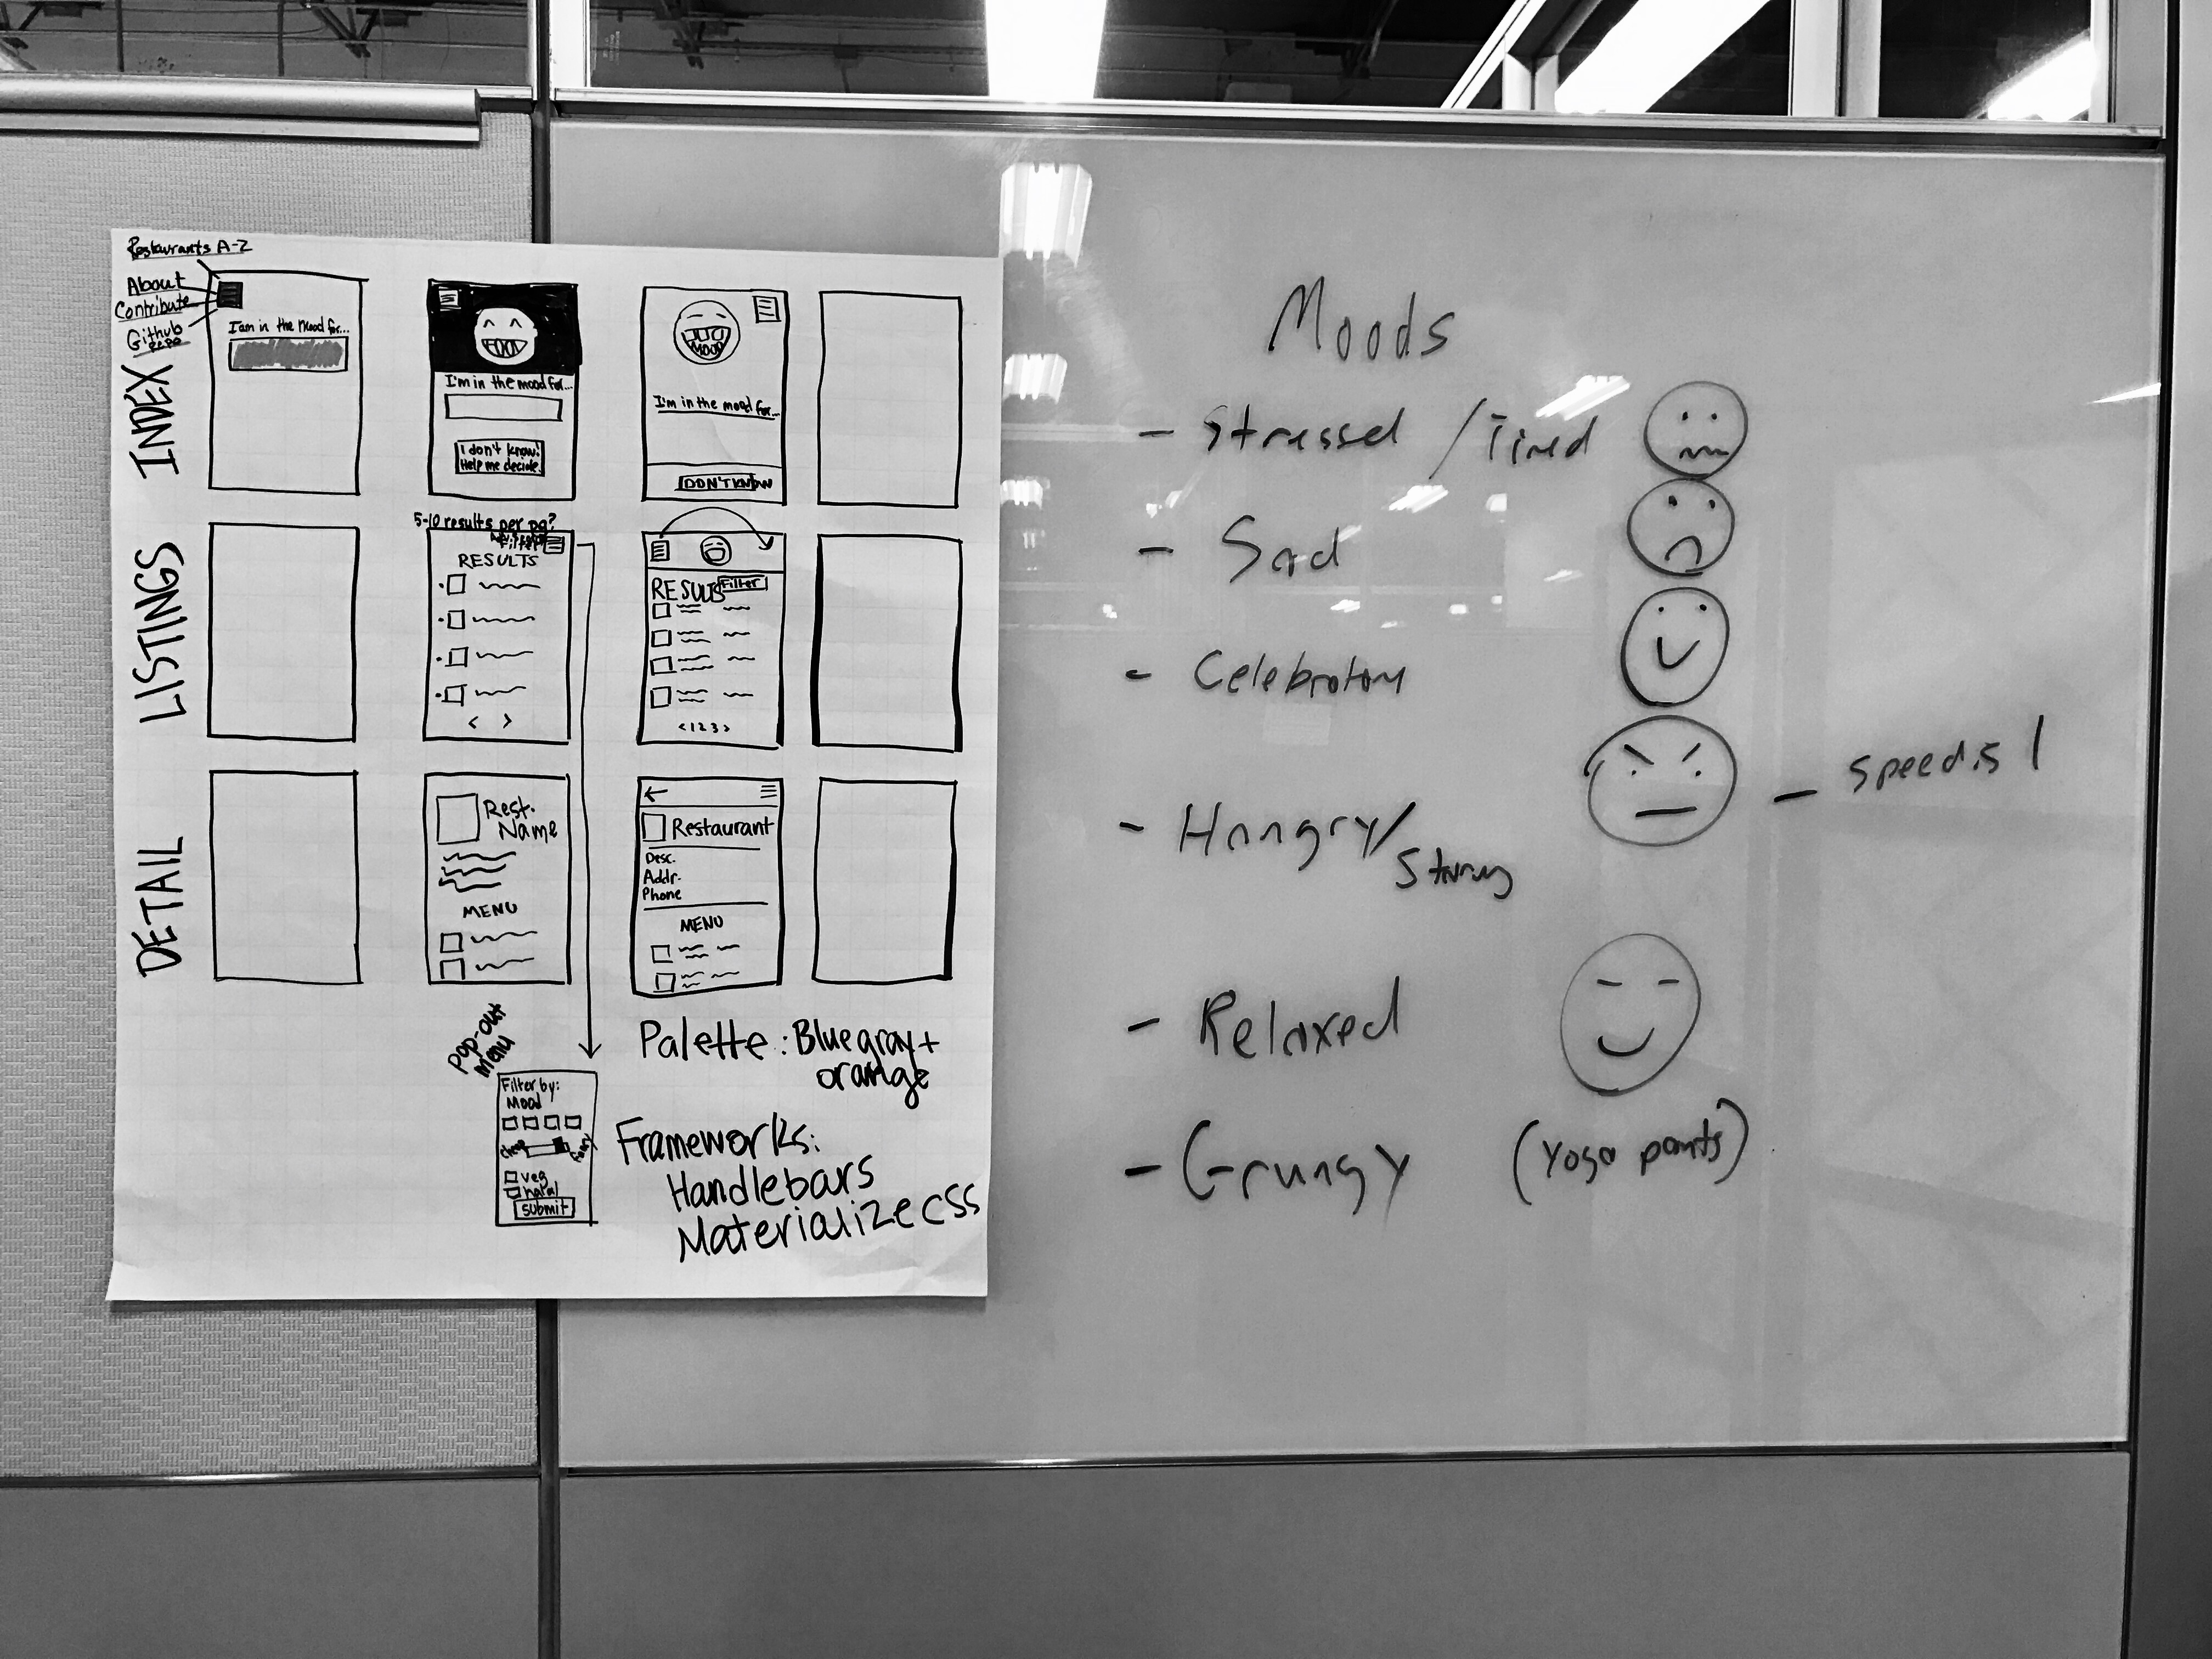 Restaurants A-Z
About
Contribute
Github
repo
I am in the mood for...
INDEX
FOOD
I'm in the mood for...
I don't know!
Help me decide.
MOOD
I'm in the mood for...
I DON'T KNOW
LISTINGS
5-10 results per pg?
Filter
RESULTS
< >
RESULTS
Filter
<123>
DETAIL
Rest.
Name
MENU
Restaurant
Desc.
Addr.
Phone
MENU
Pop-out
menu
Filter by:
Mood
cheap
fancy
veg
halal
submit
Palette: Bluegray +
orange
Frameworks:
Handlebars
Materialize CSS
Moods
- Stressed / Tired
- Sad
- Celebratory
- Hangry/
Starving
- speed is 1
- Relaxed
- Grungy (yoga pants)